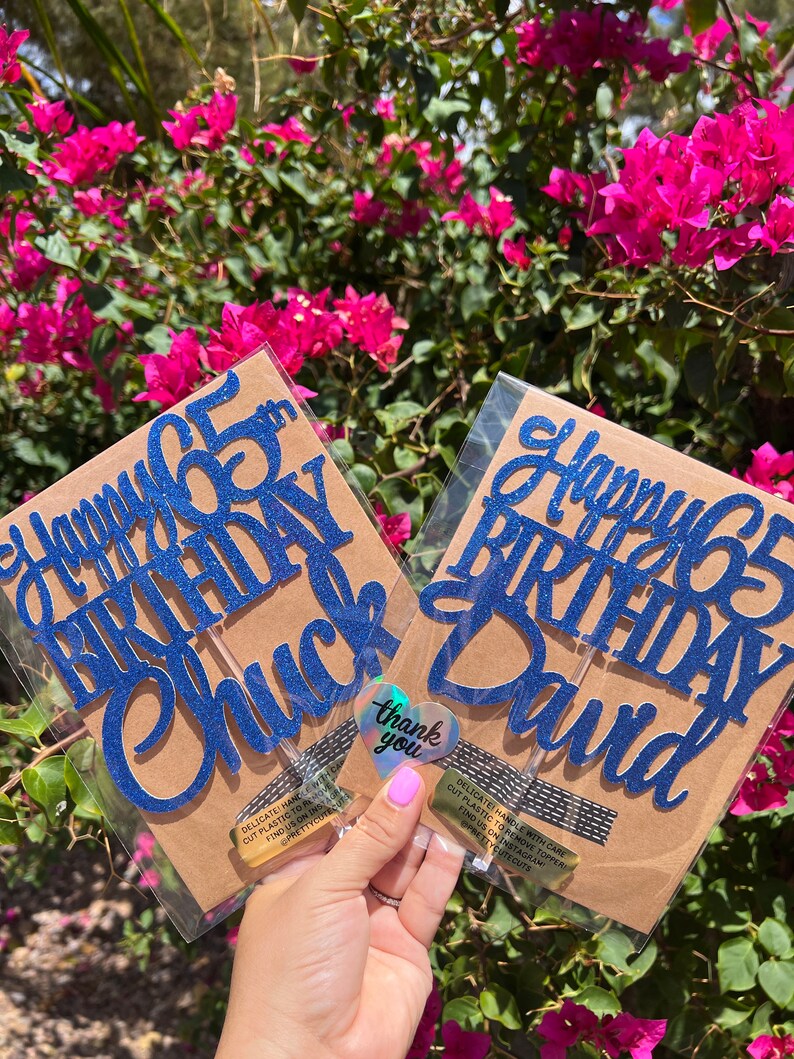 Happy 65th
BIRTHDAY
Chuck
DELICATE! HANDLE WITH CARE
CUT PLASTIC TO REMOVE TOPPER!
FIND US ON INSTAGRAM!
@PRETTYCUTECUTS
thank
you
Happy 65
BIRTHDAY
David
DELICATE! HANDLE WITH CARE
CUT PLASTIC TO REMOVE TOPPER!
FIND US ON INSTAGRAM!
@PRETTYCUTECUTS